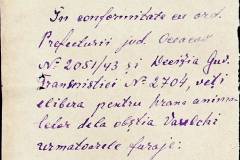 In conformitate cu ord.
Prefecturii jud. Oceacov
Nº 2051/43 și Decizia Guv.
Transnistiei Nº 2704, veți
elibera pentru hrana anima-
lelor dela obștia Varelchi
urmatoarele furaje: